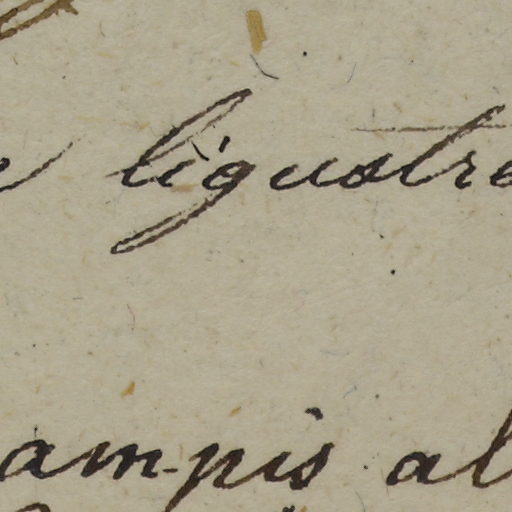 ligustre
ampis al